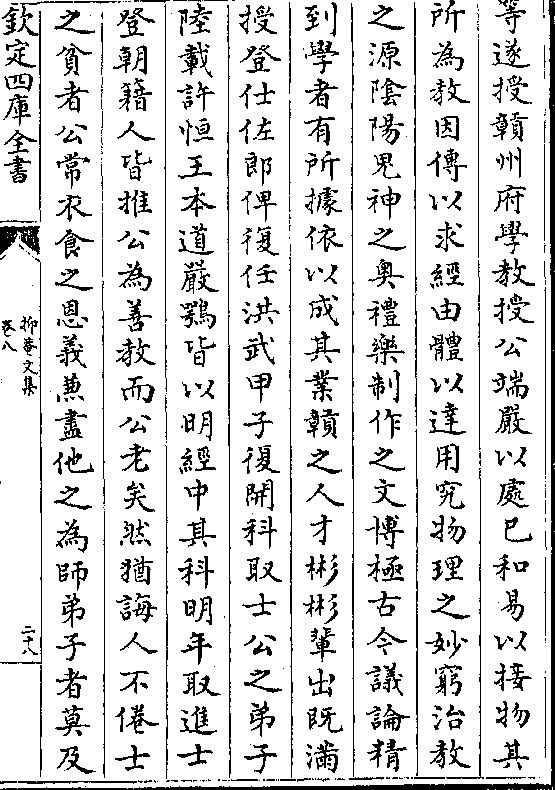 等遂授贛州府學教授公端嚴以處已和易以接物其
所為教因傳以求經由體以達用究物理之妙窮治教
之源隂陽鬼神之奥禮樂制作之文博極古今議論精
到學者有所據依以成其業贛之人才彬彬輩出既滿
授登仕佐郎俾復任洪武甲子復開科取士公之弟子
陸載許恒王本道嚴鶚皆以明經中其科明年取進士
登朝籍人皆推公為善教而公老矣然猶誨人不倦士
之貧者公常衣食之恩義兼盡他之為師弟子者莫及
欽定四庫全書
抑菴文集
卷八
二十八